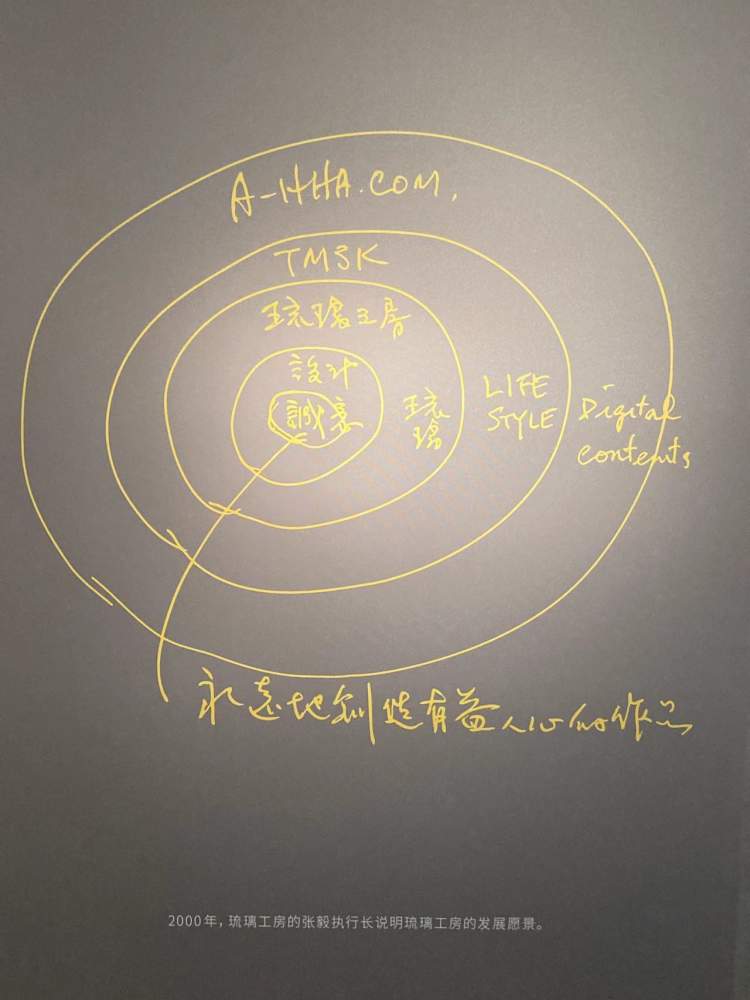 A-HHA.COM.
TMSK
琉璃工房
設計
誠意
琉
璃
LIFE
STYLE
Digital
contents
永遠地創造有益人心的作品
2000年，琉璃工房的张毅执行长说明琉璃工房的发展愿景。